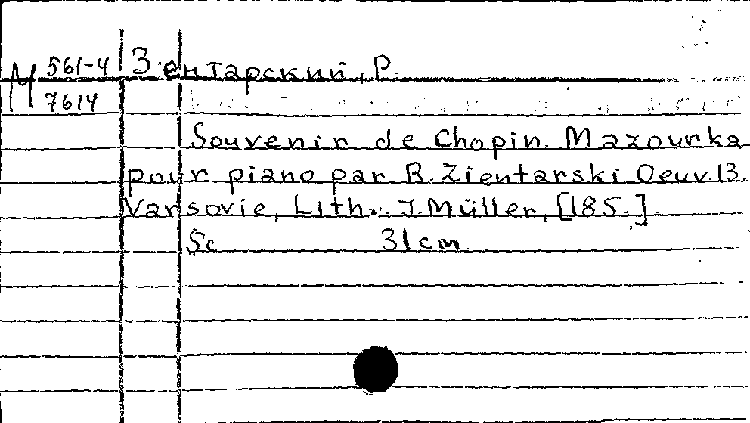 М 561-4 Зентарский, Р.
7614
Souvenir de Chopin. Mazourka
pour piano par R. Zientarski Oeuv. 13.
Varsovie, Lith. J. Müller, [185.]
5c 31 cm